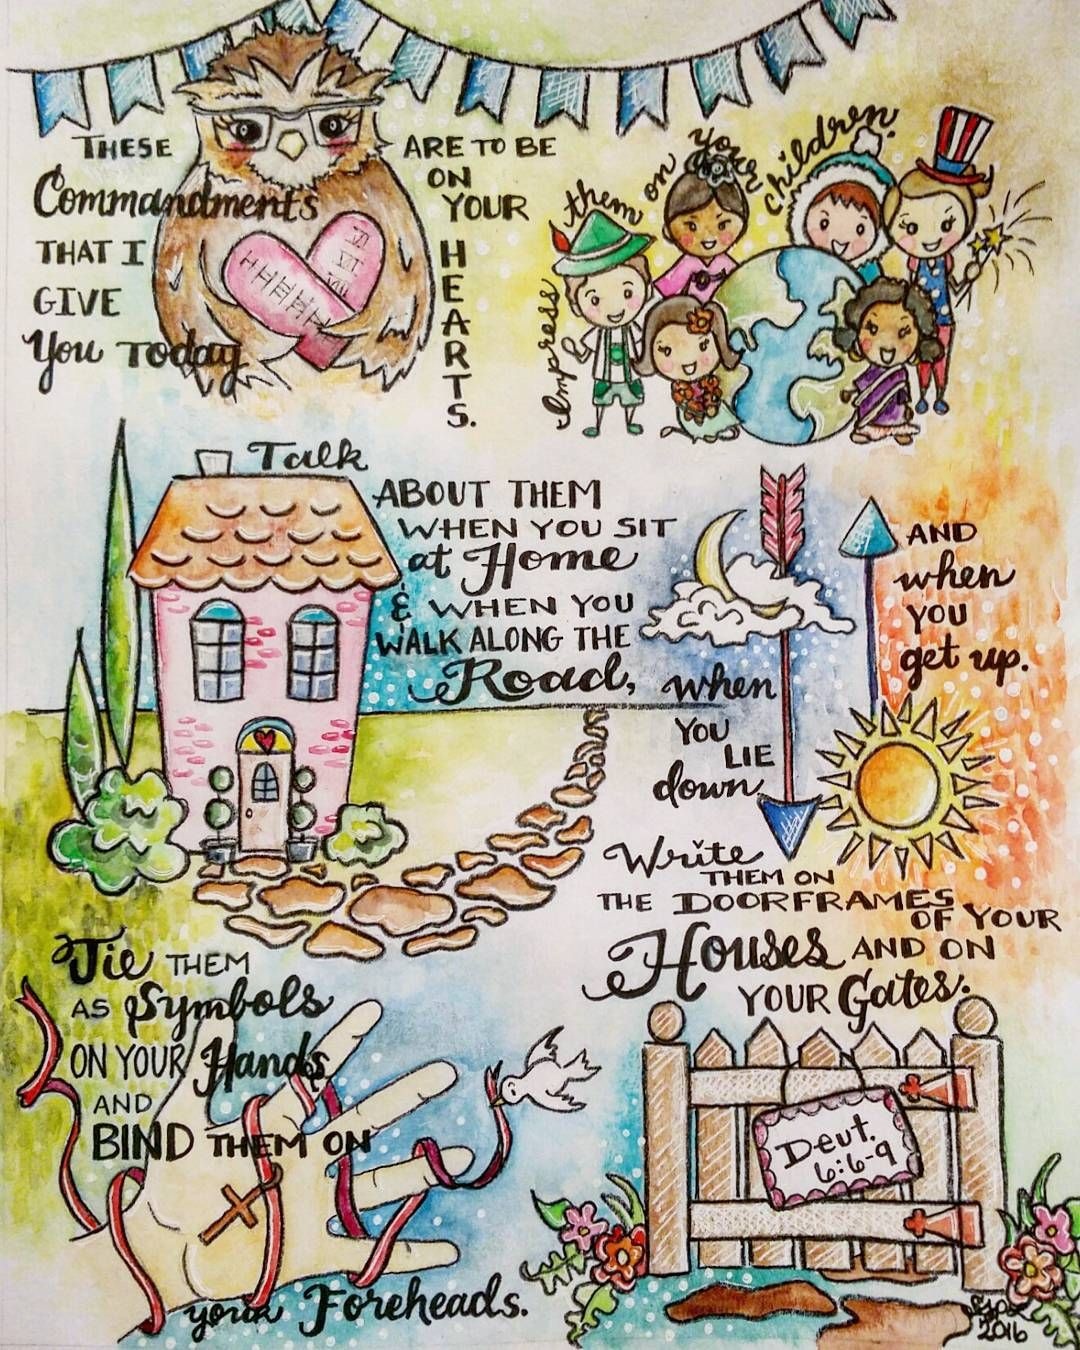 These are to be
Commandments on
that I your
give hearts.
You today
Impress them on your children.
Talk
about them
when you sit
at Home
& when you
walk along the
Road,
when
you
lie
down
and
when
you
get up.
Tie them
as Symbols
on your Hands
and
bind them on
your Foreheads.
Write
them on
the doorframes
of your
Houses and on
your Gates.
Deut.
6:6-9
2016